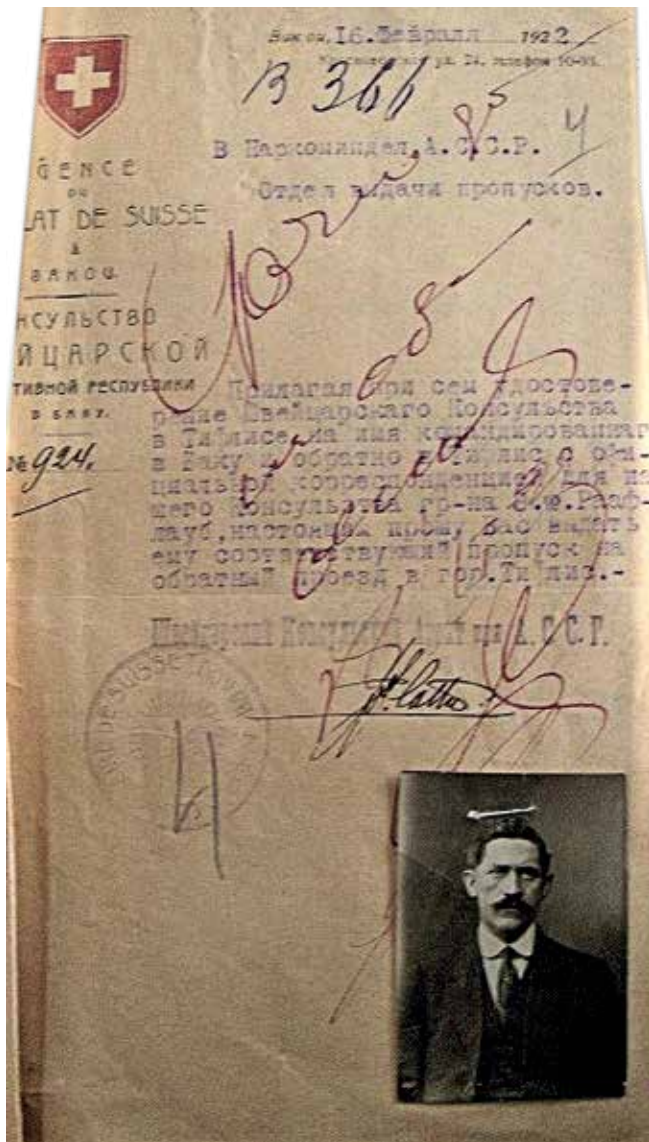 Bakou, 16. Февраля 1922
ул. 24, телефон 10-93.
В 366
4
В Наркоминдел А.С.С.Р.
Отдел выдачи пропусков.
GENCE
DU
LAT DE SUISSE
À
BAKOU.
НСУЛЬСТВО
ЙЦАРСКОЙ
ТИВНОЙ РЕСПУБЛИКИ
В БАКУ.
№ 924.
Прилагая при сем удостове-
рение Швейцарского Консульства
в Тифлисе на имя командированнаг
в Баку и обратно в Тифлис с офи-
циальной корреспонденцией для на
шего Консульства гр-на Рааф-
лауб, настоящим прошу Вас выдать
ему соответствующий пропуск на
обратный проезд в гор. Тифлис.-
Швейцарский Консульский Агент при А.С.С.Р.
DE SUISSE
4